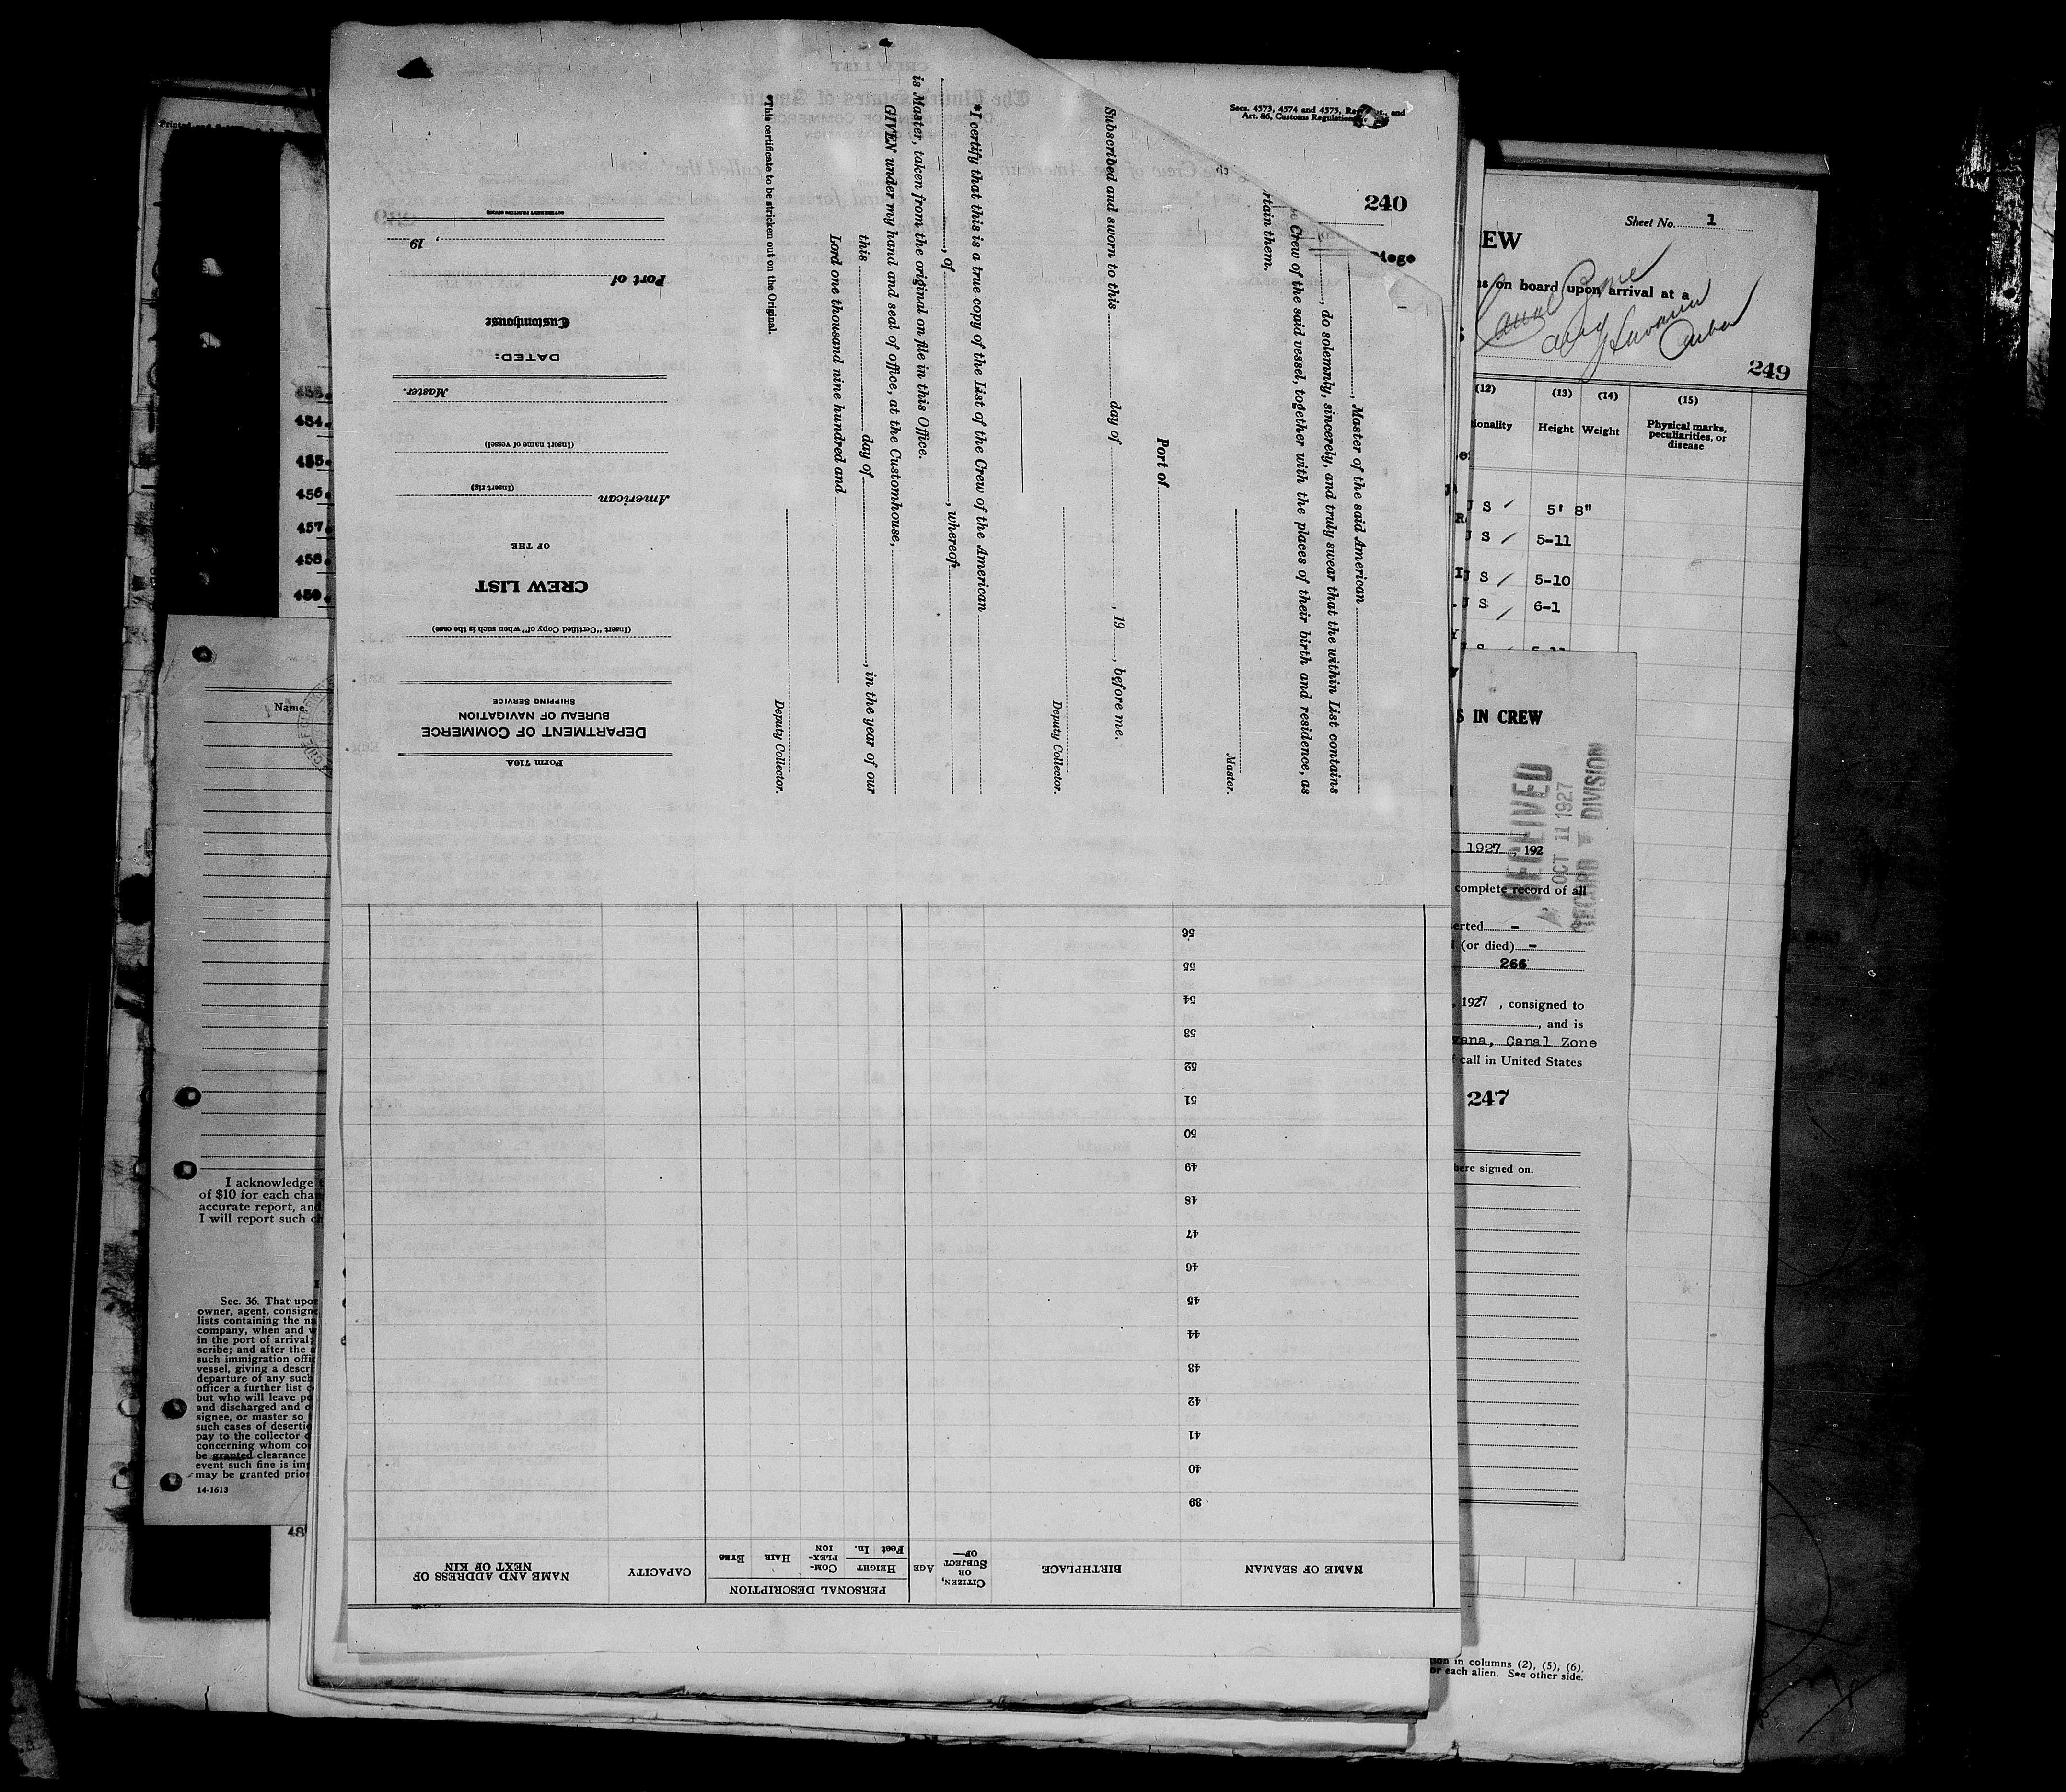 Secs. 4573, 4574 and 4575, Rev. , and
Art. 86, Customs Regulations
240
Diego
rtain them.
Crew of the said vessel, together with the places of their birth and residence, as
, do solemnly, sincerely, and truly swear that the within List contains
, Master of the said American
Master.
Port of
Subscribed and sworn to this day of , 19 , before me.
Deputy Collector.
*I certify that this is a true copy of the List of the Crew of the American
, of , whereof
is Master, taken from the original on file in this Office.
GIVEN under my hand and seal of office, at the Customhouse,
this day of , in the year of our
Lord one thousand nine hundred and
Deputy Collector.
*This certificate to be stricken out on the Original.
Form 710A
DEPARTMENT OF COMMERCE
BUREAU OF NAVIGATION
SHIPPING SERVICE
(Insert "Certified Copy of" when such is the case)
CREW LIST
OF THE
American
(Insert rig)
(Insert name of vessel)
Master.
DATED:
Customhouse
Port of
, 19
GOVERNMENT PRINTING OFFICE
NAME OF SEAMAN
BIRTHPLACE
CITIZEN, OR SUBJECT OF—
AGE
PERSONAL DESCRIPTION
HEIGHT
Feet In.
COM-PLEX-ION
HAIR
EYES
CAPACITY
NAME AND ADDRESS OF
NEXT OF KIN
39
40
41
42
43
44
45
46
47
48
49
50
51
52
53
54
55
56
Sheet No. 1
EW
s on board upon arrival at a
Canal Zone
and Havana
Cuba
249
(12) (13) (14) (15)
ionality Height Weight Physical marks,
peculiarities, or
disease
U S 5' 8"
U S 5-11
U S 5-10
U S 6-1
S IN CREW
RECEIVED
OCT 11 1927
RECORD DIVISION
1927, 192
complete record of all
erted -
(or died) -
266
1927, consigned to
, and is
vana, Canal Zone
call in United States
247
here signed on.
ion in columns (2), (5), (6),
or each alien. See other side.
Printed and
453.
454.
455.
456.
457.
458.
459.
Name.
I acknowledge t
of $10 for each chan
accurate report, and
I will report such ch
Sec. 36. That upon
owner, agent, consigne
lists containing the na
company, when and w
in the port of arrival;
scribe; and after the a
such immigration offic
vessel, giving a descri
departure of any such
officer a further list o
but who will leave po
and discharged and o
signee, or master so
such cases of desertio
pay to the collector o
concerning whom cor
be granted clearance
event such fine is imp
may be granted prior
14-1613
48